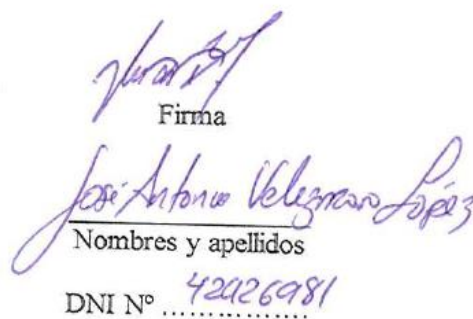 Firma
José Antonio López
Nombres y apellidos
DNI Nº 42026981